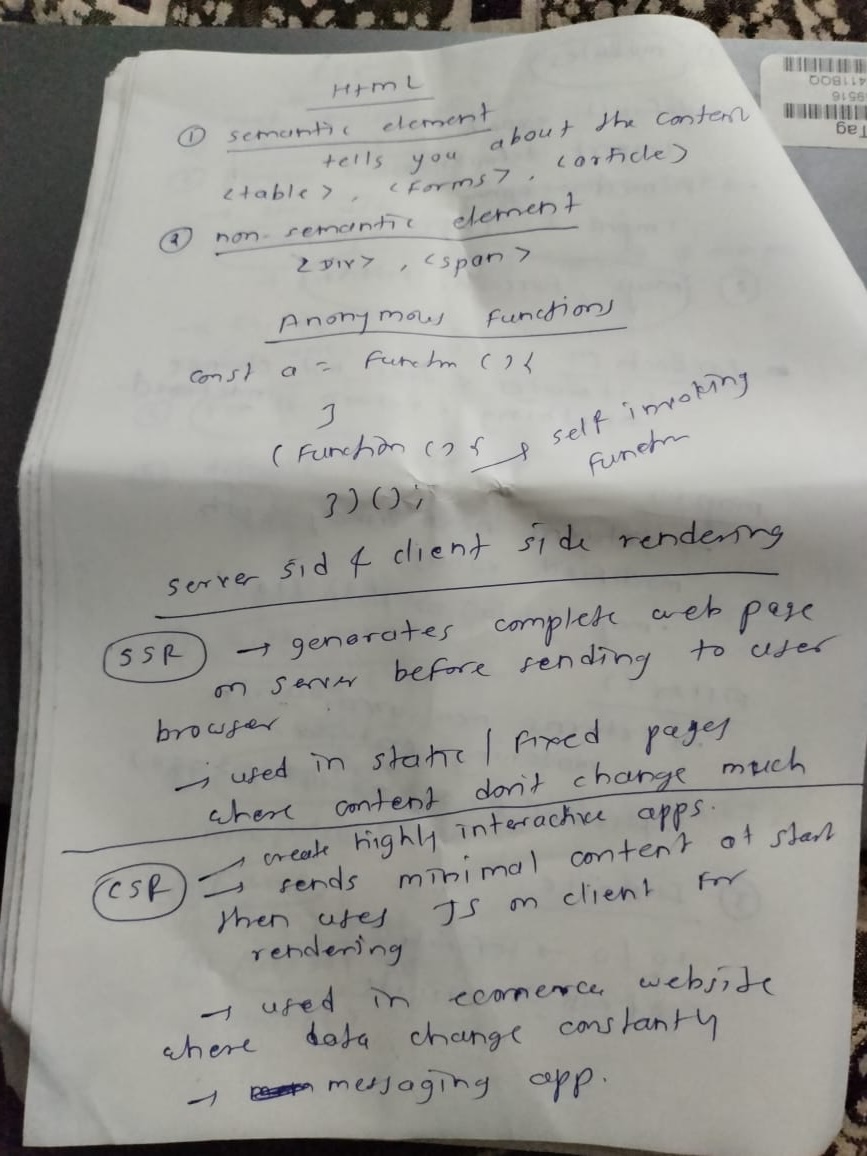 Html
① semantic element
tells you about the content
<table>, <forms>, <article>
② non-semantic element
<Div>, <span>
Anonymous Functions
const a = Functn () {
}
(Function () { → self invoking
Functn
})();
server sid & client side rendering
SSR → generates complete web page
on server before sending to user
browser
→ used in static / fixed pages
where content don't change much
CSR → create highly interactive apps.
→ sends minimal content at start
then uses JS on client for
rendering
→ used in ecomerce website
where data change constantly
→ messaging app.
9516
Tag